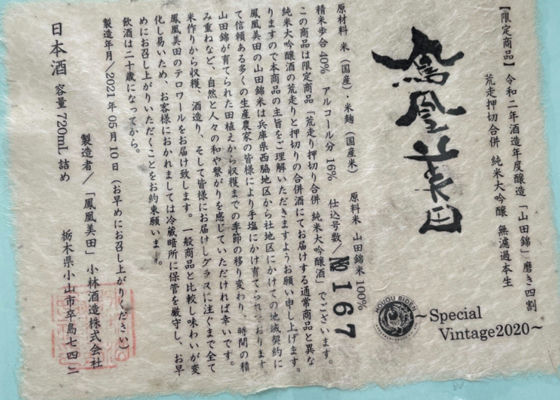 【限定商品】 令和二年酒造年度醸造 「山田錦」磨き四割
荒走押切合併 純米大吟醸 無濾過本生
鳳凰美田
~Special
Vintage2020~
原材料 米(国産)・米麹(国産米) 原料米 山田錦米100%
精米歩合40% アルコール分 16% 仕込号数/ №167
この商品は限定商品「荒走り押切り合併 純米大吟醸酒」でございます。
純米大吟醸酒の荒走りと押切りの合併酒にてお届けする通常商品と異な
りますので本商品の主旨をご理解いただきますようお願い申し上げます。
鳳凰美田の山田錦米は兵庫県西脇地区から社地区にかけての地域契約に
て信頼ある多くの生産農家の皆様により手塩にかけ育てられております
山田錦が育てられた田植えから収穫までの季節の移り変わり、時間の積
み重ねなど、自然と人々の和や繋がりを感じていただければ幸いです。
米作りから収穫、酒造り、そして皆様にお届けしグラスに注ぐまで全て
鳳凰美田のテロワールをお届け致します。一般商品と比較し味わいが変
化し易いため、お客様におかれましては冷蔵暗所に保管を厳守し、お早
めにお召し上がりいただくことをお約束願います。
飲酒は二十歳になってから。
製造年月/2021年05月10日(お早めにお召し上がりください)
日本酒 容量720mL詰め
製造者/「鳳凰美田」小林酒造株式会社
栃木県小山市卒島七四二